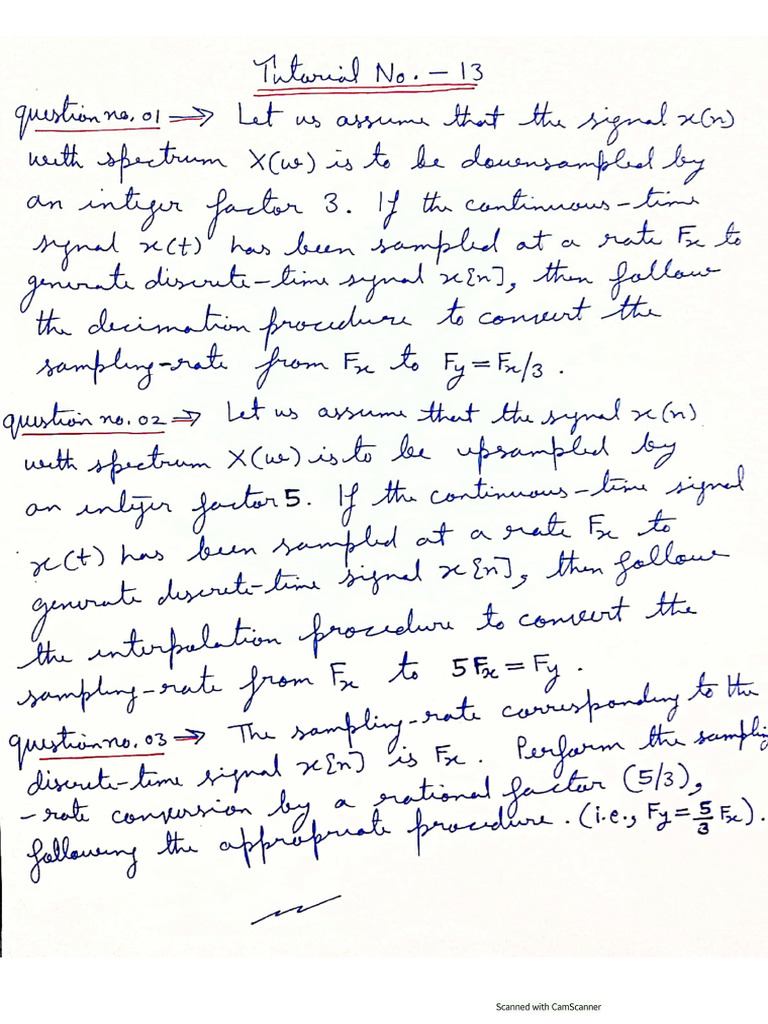 Tutorial No. – 13
question no. 01 → Let us assume that the signal x(n)
with spectrum X(w) is to be downsampled by
an integer factor 3. If the continuous-time
signal x(t) has been sampled at a rate Fx to
generate discrete-time signal x[n], then follow
the decimation procedure to convert the
sampling-rate from Fx to Fy = Fx/3.
question no. 02 → Let us assume that the signal x(n)
with spectrum X(w) is to be upsampled by
an integer factor 5. If the continuous-time signal
x(t) has been sampled at a rate Fx to
generate discrete-time signal x[n], then follow
the interpolation procedure to convert the
sampling-rate from Fx to 5Fx = Fy.
question no. 03 → The sampling-rate corresponding to the
discrete-time signal x[n] is Fx. Perform the sampling
-rate conversion by a rational factor (5/3),
following the appropriate procedure. (i.e., Fy = 5/3 Fx).
Scanned with CamScanner